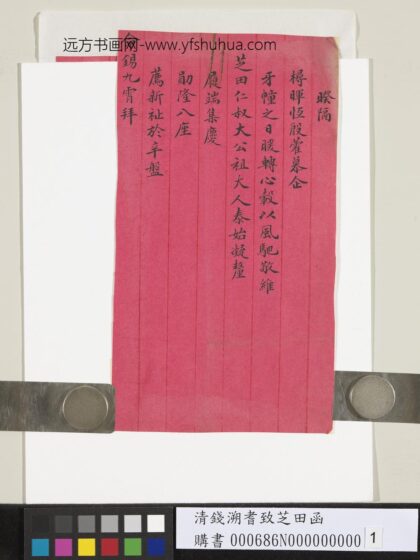 远方书画网-www.yfshuhua.com
暌隔
樽暉恒殷藿慕企
牙幢之日暖轉心轂以風馳敬維
芝田仁叔大公祖大人泰始凝釐
履端集慶
勛隆八座
薦新祉於辛盤
錫九霄拜
清錢溯耆致芝田函
購書 000686N000000000 1